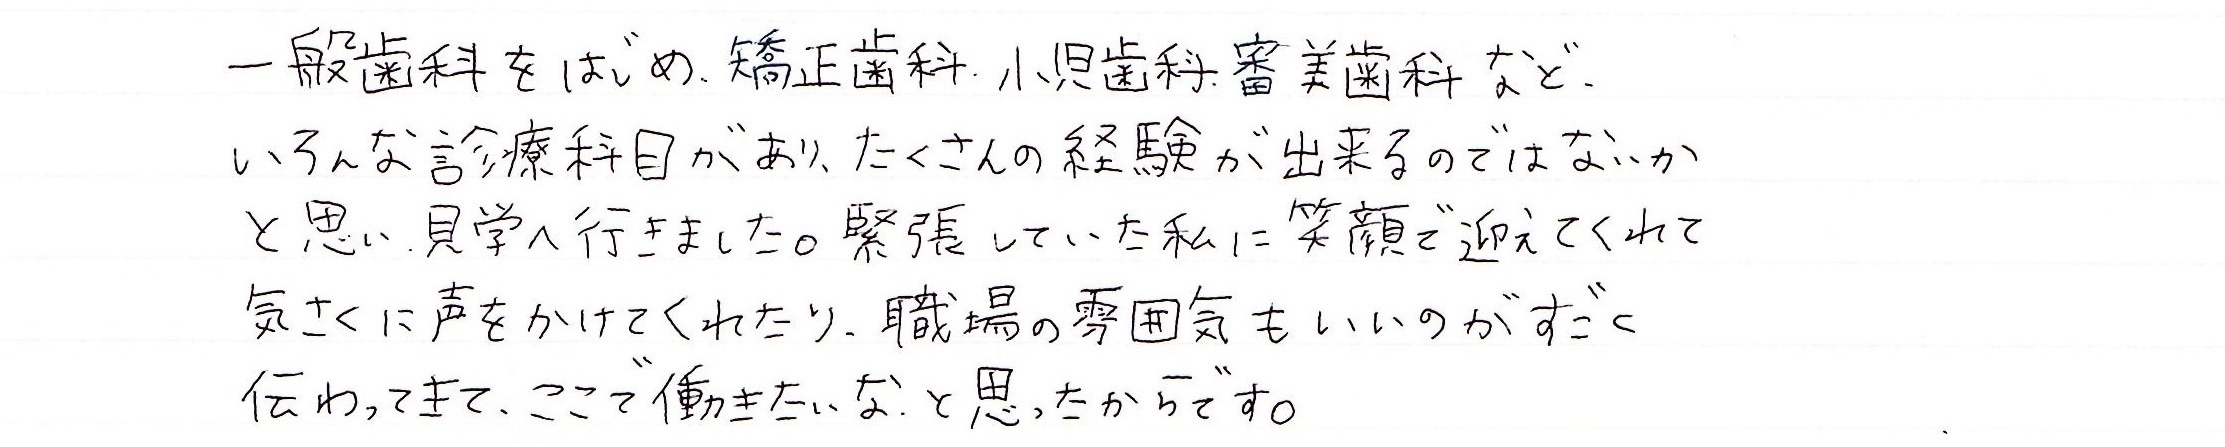 一般歯科をはじめ、矯正歯科、小児歯科、審美歯科など、
いろんな診療科目があり、たくさんの経験が出来るのではないか
と思い、見学へ行きました。緊張していた私に笑顔で迎えてくれて
気さくに声をかけてくれたり、職場の雰囲気もいいのがすごく
伝わってきて、ここで働きたいな、と思ったからです。